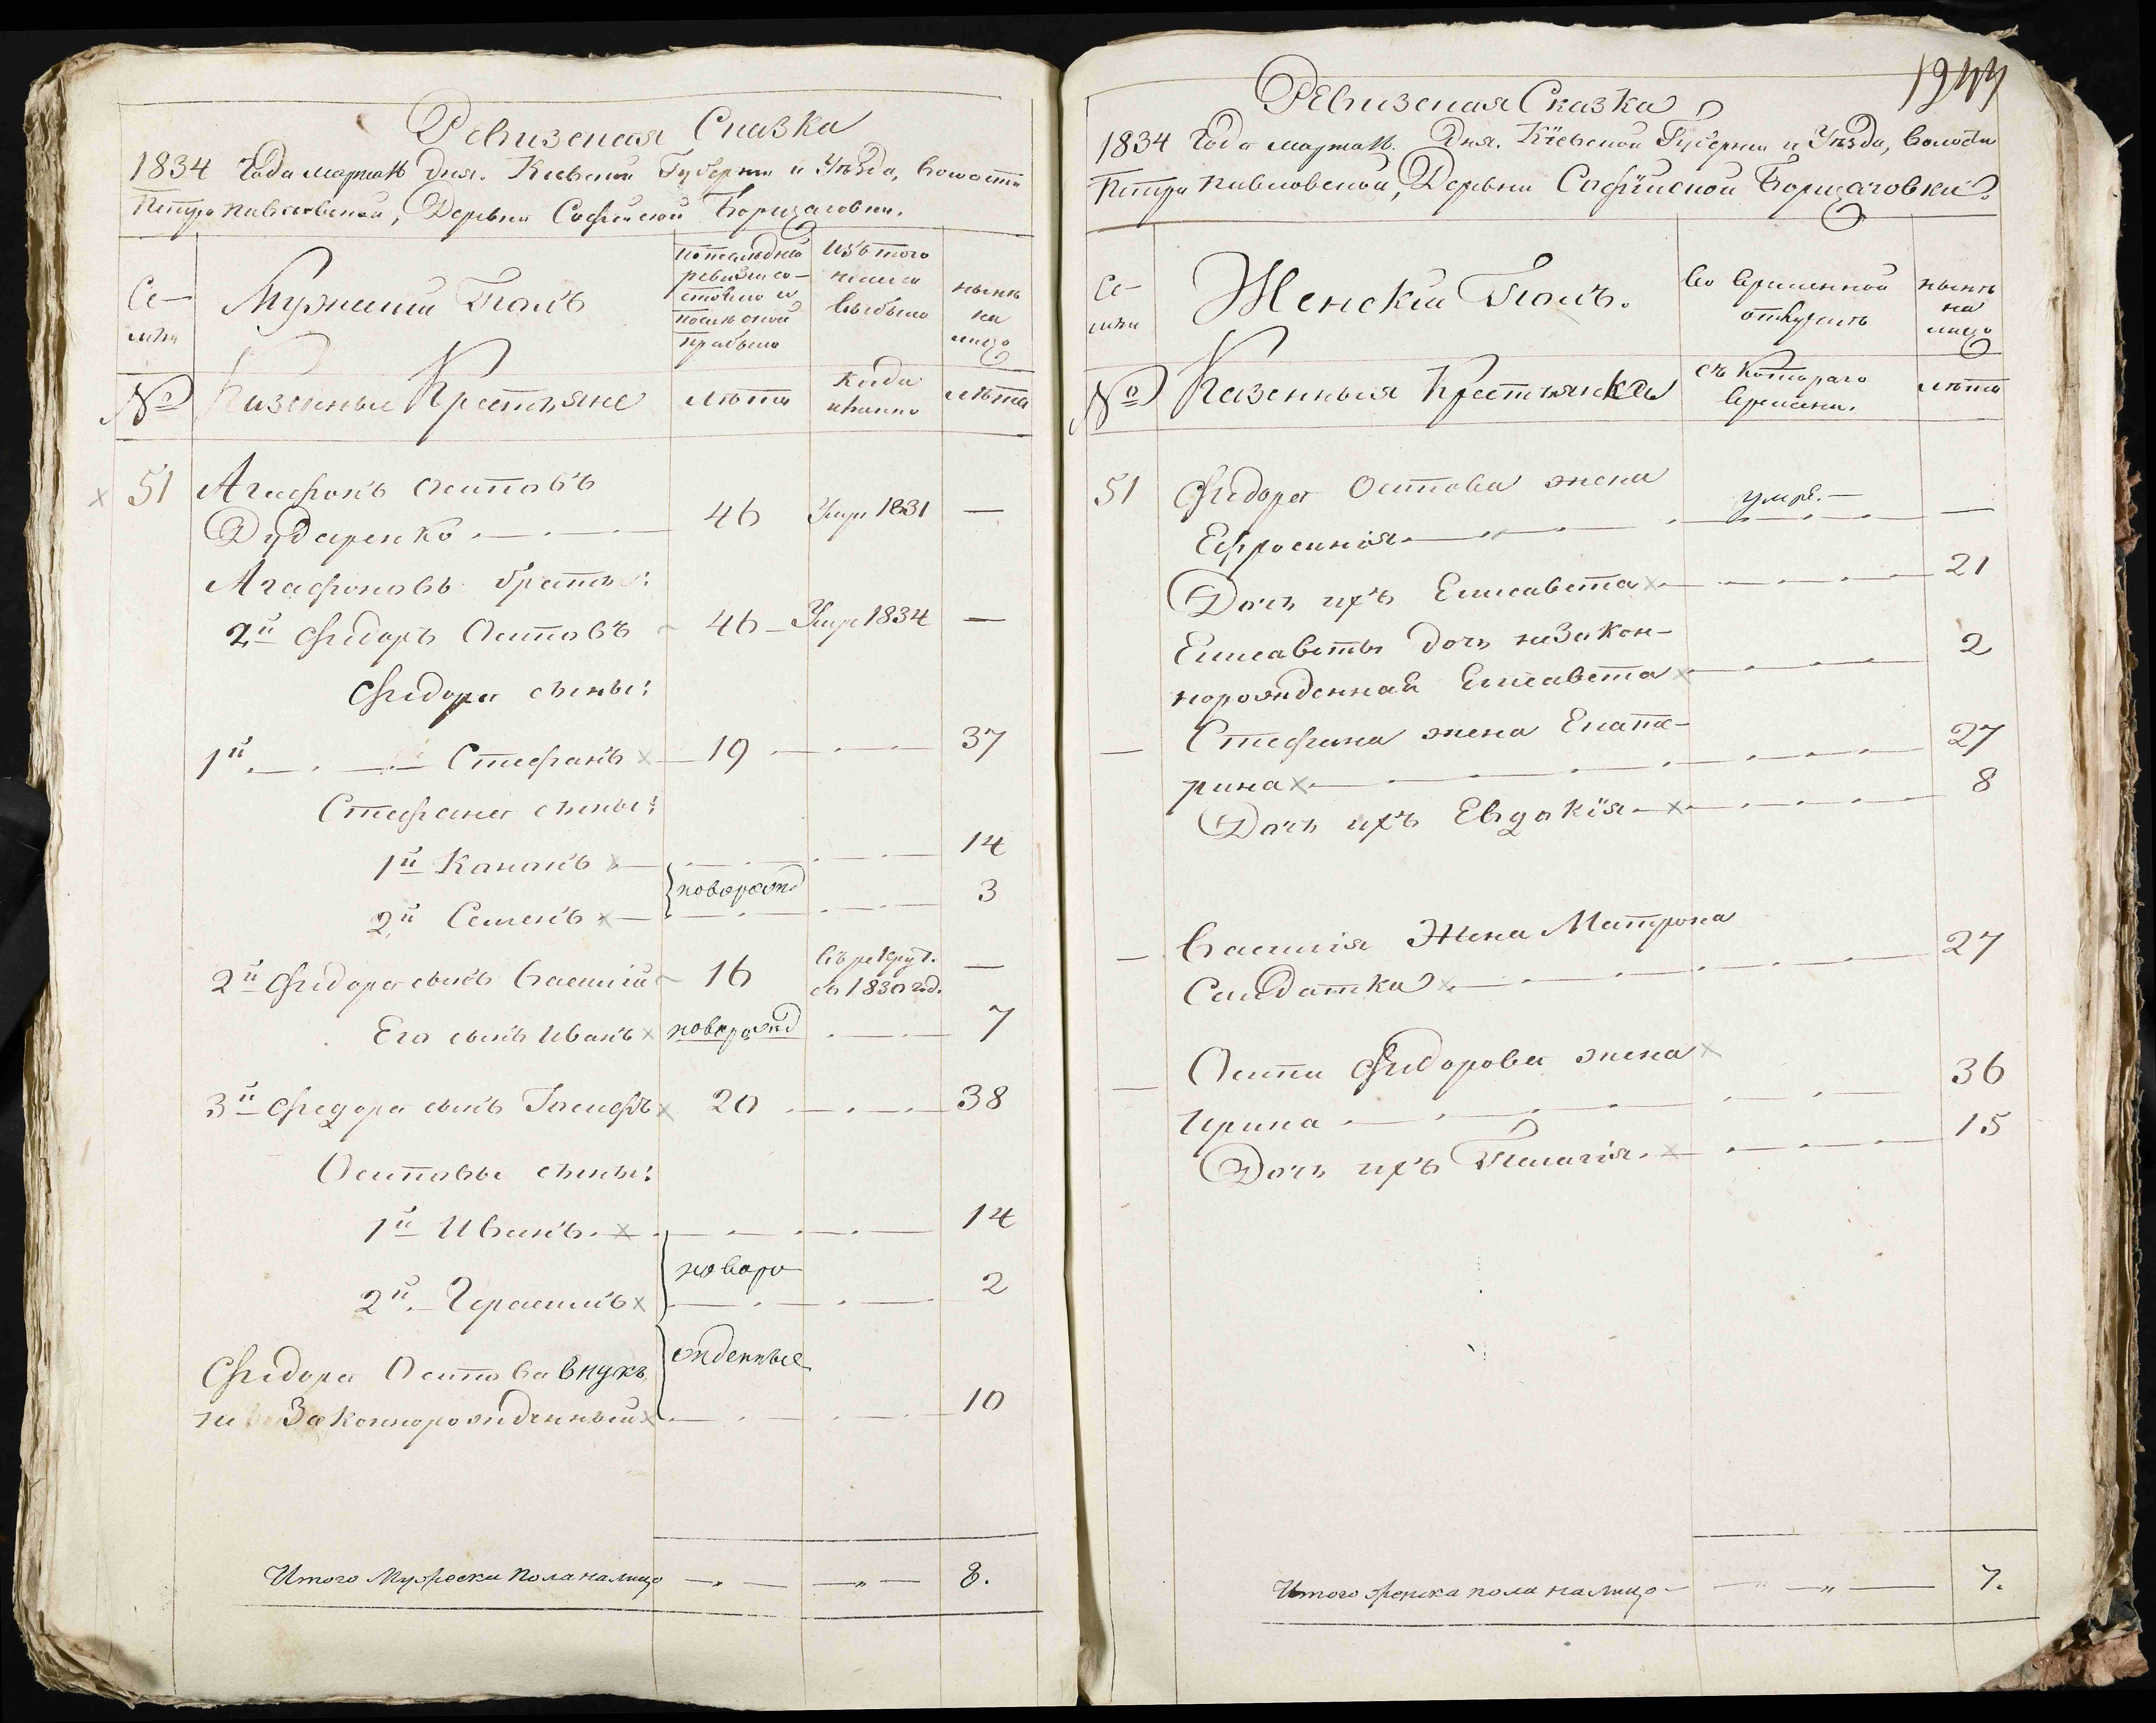 Ревизская Сказка
1834 Года марта 16 Дня. Киевской Губернии и Уѣзда, волости
Петро павловской, Деревни Софійской Борщаговки.
Се-
мьи
Мужеский Полъ
По последней
ревизіи со-
стояло и
после оной
прибыло
Изъ того
числа
выбыло
нынѣ
на
лицо
№
Казенные Крестьяне
лѣта
когда
имянно
лѣта
51 Агафонъ Осиповъ
Дударенко 46 Умр 1831 —
Агафоновъ братъ:
2й Федоръ Осиповъ 46 Умр 1834 —
Федора сыны:
1й Стефанъ x 19 37
Стефана сыны:
1й Кононъ x 14
новорожд
2й Семенъ x 3
2й Федора сынъ Василій 16 въ рекрут. съ 1830 год. —
Его сынъ Иванъ x новорожд 7
3й Федора сынъ Іосифъ x 20 38
Осиповы сыны:
1й Иванъ. x 14
новоро
2й Герасимъ x 2
жденные
Федора Осипова внукъ
не Законнорожденный x 10
Итого Мужеска Пола налицо —„— —„— 8.
1944
Ревизская Сказка
1834 Года марта 16. Дня. Кіевской Губерніи и Уѣзда, волости
Петро павловской, Деревни Софійской Борщаговки.
Се-
мьи
Женскій Полъ.
Во временной
отлучкѣ
нынѣ
на
лицо
№
Казенныя Крестьянки
съ котораго
времени.
лѣта
51 Федора Осипова жена
Ефросинія умре. —
Дочь ихъ Елисавета x 21
Елисаветы дочь незакон-
норожденная Елисавета x 2
— Стефана жена Екате-
рина x 27
Дочь ихъ Евдокія x 8
— Василія Жена Матрона
Солдатка x 27
— Осипа Федорова жена x
Ирина 36
Дочь ихъ Пелагія. x 15
Итого женска пола налицо — —„— 7.